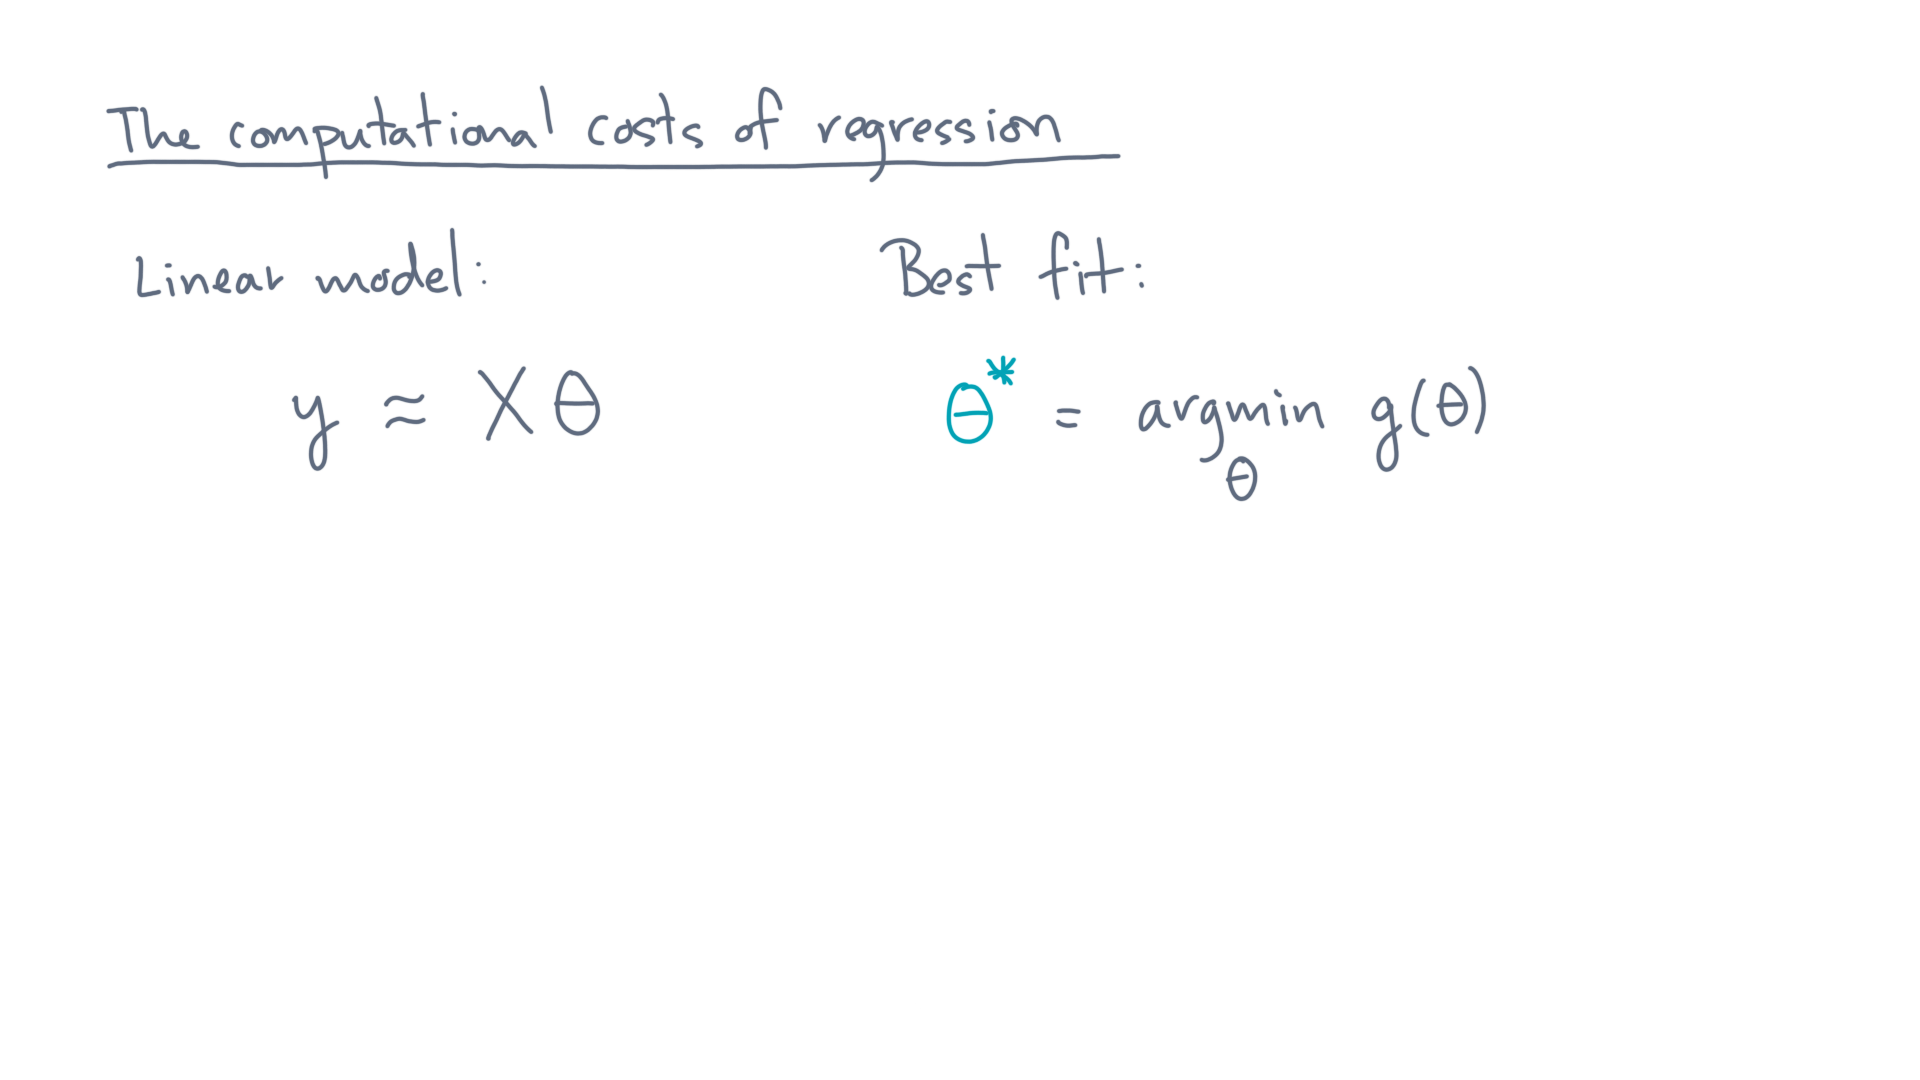 The computational costs of regression
Linear model:
y ≈ Xθ
Best fit:
θ* = argmin g(θ)
θ